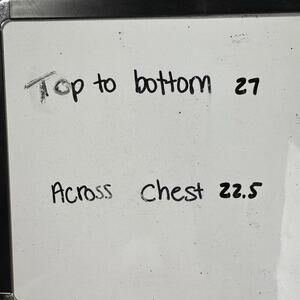 Top to bottom 27
Across Chest 22.5